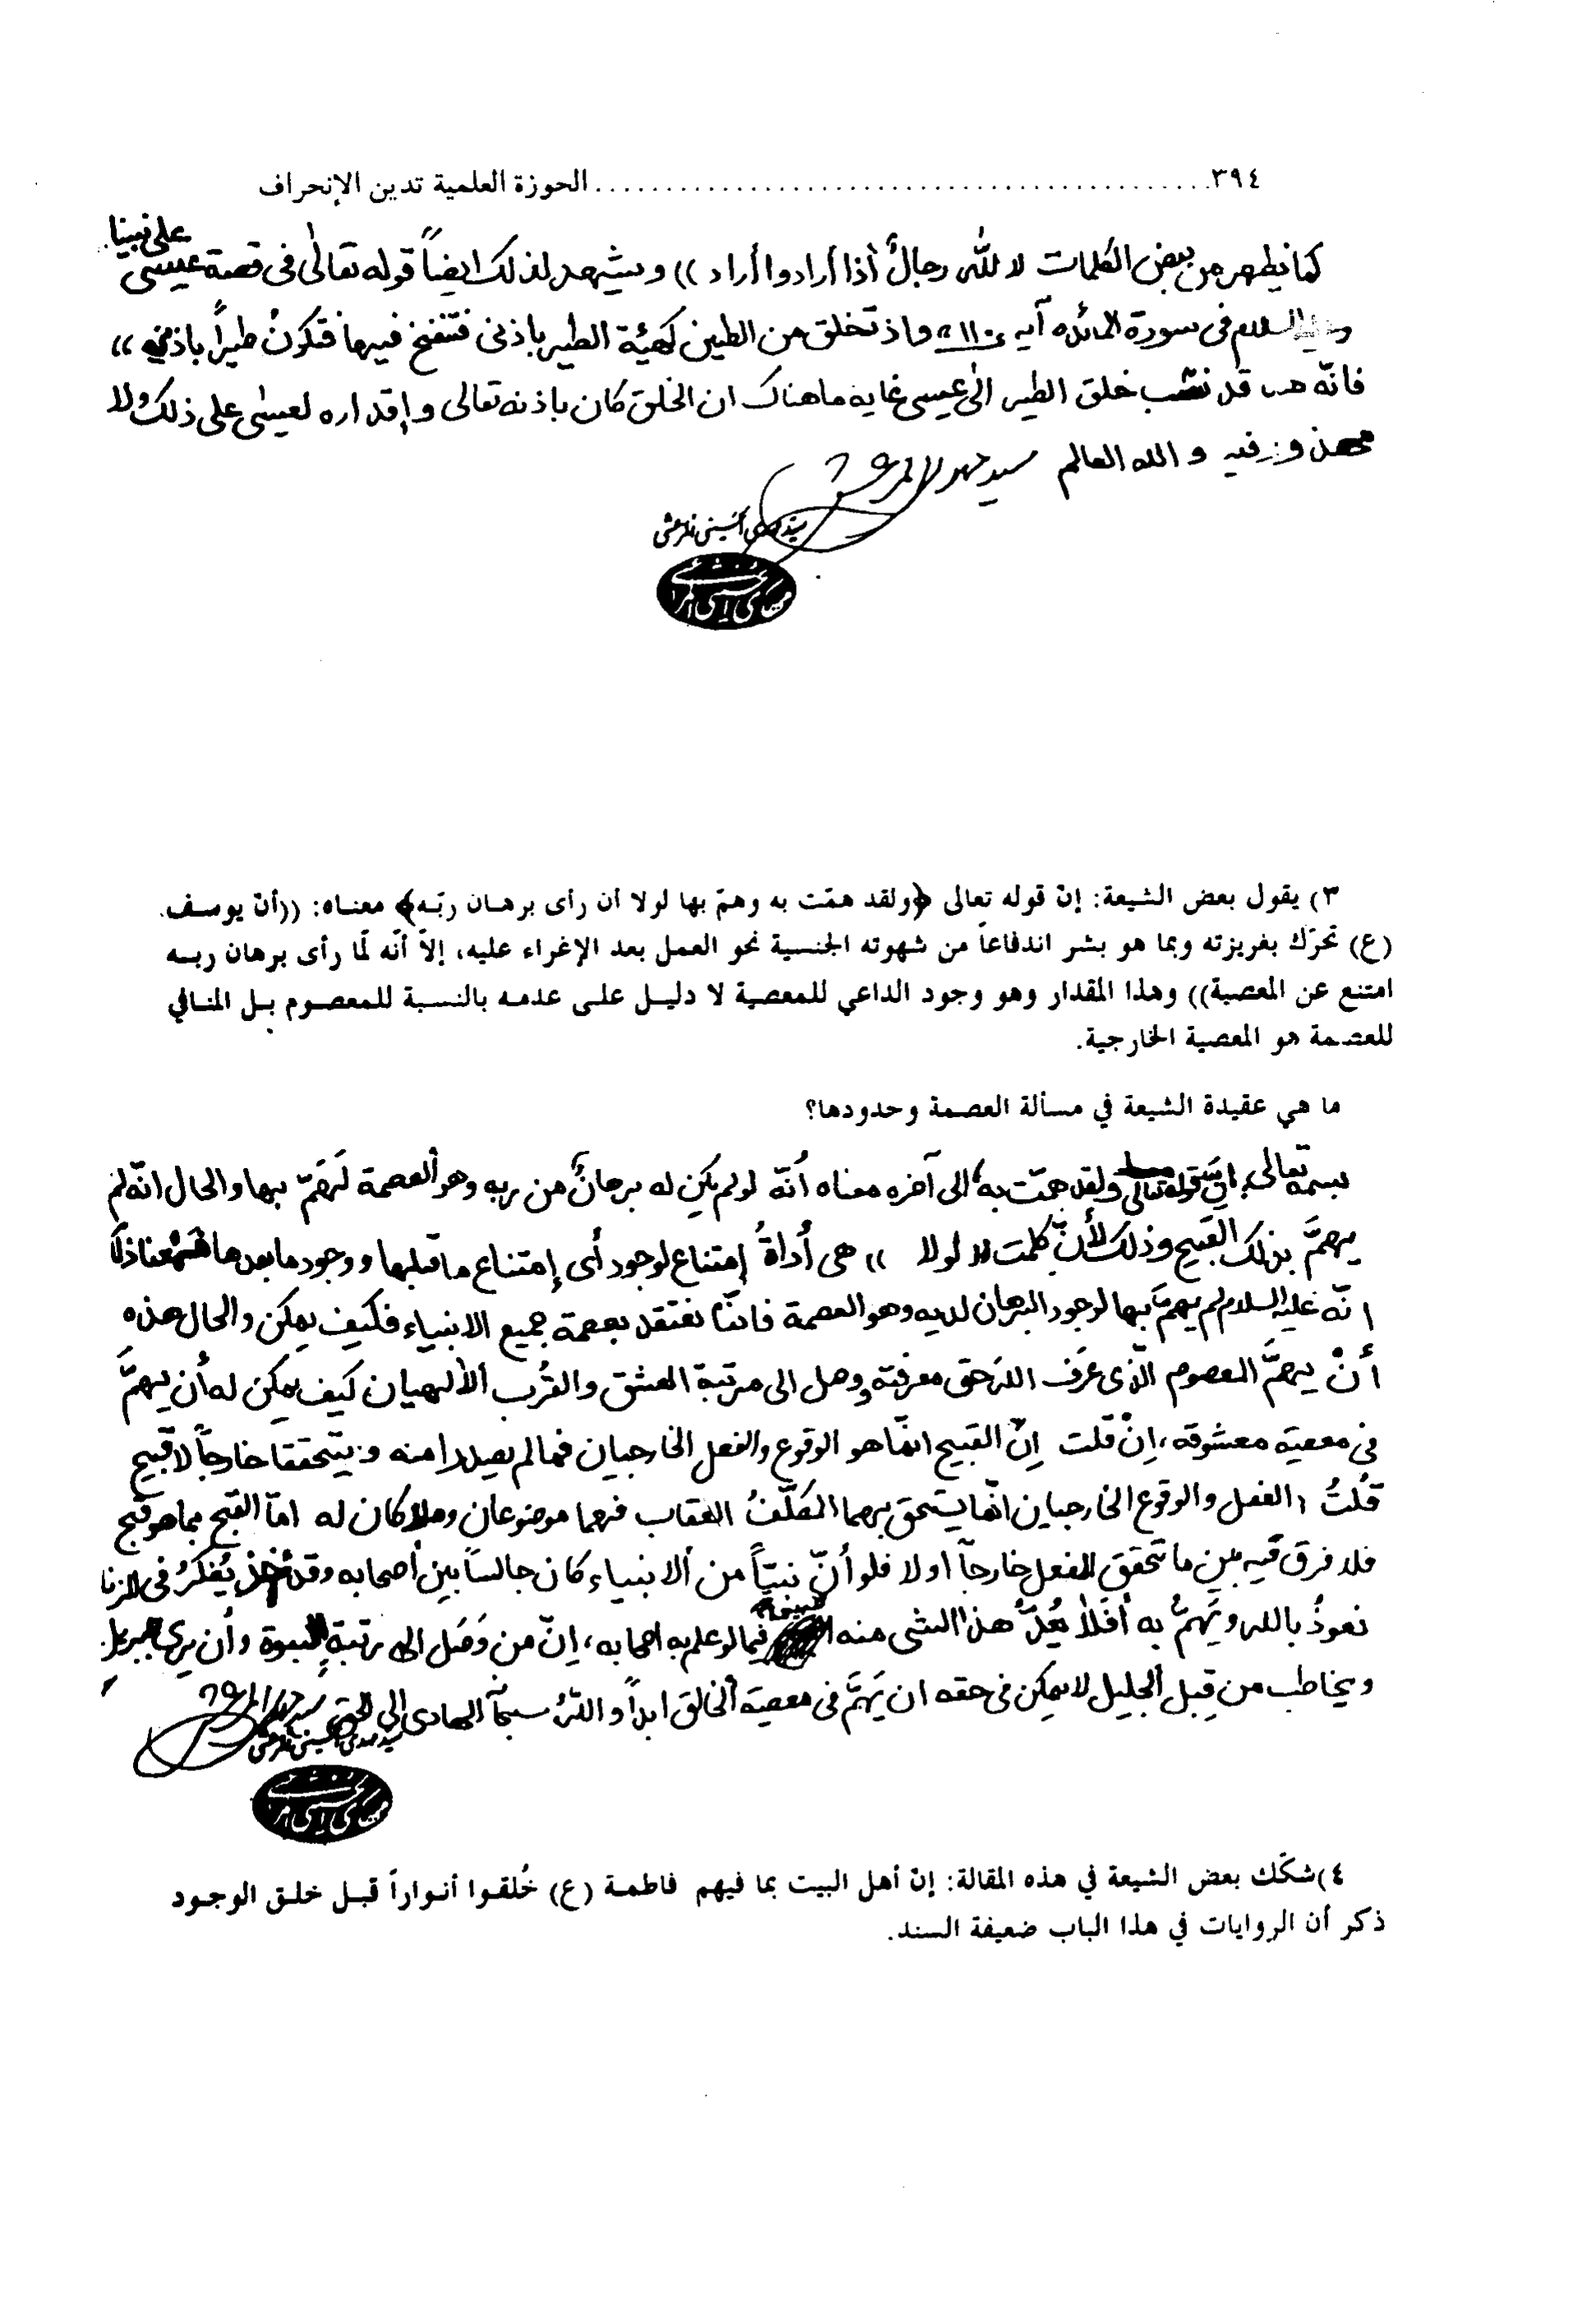 ٣٩٤ ............................................ الحوزة العلمية تدين الإنحراف
كما يظهر من بعض الكلمات لله رجالٌ أذا أرادوا أراد )) ويشهد لذلك ايضاً قوله تعالى فى قصة عيسى على نبينا
السلام فى سورة المائده آيه ١١٠ واذ تخلق من الطين كهيئة الطير باذنى فتنفخ فيها فتكونُ طيراً باذنى ،،
فانّه قد نسب خلق الطير الى عيسى غايه ماهناك ان الخلق كان باذنه تعالى وإقداره لعيسى على ذلك ولا
محذور فيه و الله العالم سيد مهدى المرعشى
سيد مهدى الحسينى المرعشى
٣) يقول بعض الشيعة: إنّ قوله تعالى ﴿ولقد همّت به وهمّ بها لولا أن رأى برهـان ربّـه﴾ معنـاه: ((أنّ يوسـف.
(ع) تحرّك بغريزته وبما هو بشر اندفاعاً من شهوته الجنسية نحو العمل بعد الإغراء عليه، إلاّ أنّه لمّا رأى برهان ربـه
امتنع عن المعصية)) وهذا المقدار وهو وجود الداعي للمعصية لا دليـل علـى عدمـه بالنسبة للمعصـوم بـل المنـافي
للعصمة هو المعصية الخارجية.
ما هي عقيدة الشيعة في مسألة العصمة وحدودها؟
بسمه تعالى، انّ قوله تعالى ولقد همّت به، الى آخره معناه أنّه لولم يكن له برهانٌ من ربه وهو العصمة لَهَمّ بها والحال انّه لم
يهمَّ بذلك القبيح وذلك لأنّ كلمت لولا ،، هى أداةُ إمتناع لوجود أى إمتناع ماقبلها ووجود مابعدها
انّه عليه السلام لم يهمّ بها لوجود البرهان لديه وهو العصمة فانّنا نعتقد بعصمة جميع الانبياء فكيف يمكن والحال هذه
أنْ يهمَّ المعصوم الّذى عَرَف الله حق معرفته ووصل الى مرتبة العشق والقُرب ألألهيان كيف يمكن له أن يهمَّ
فى معصية معشوقه، إنْ قلت إنّ القبيح انمّا هو الوقوع والفعل الخارجيان فمالم يصدرا منه و يتحققا خارجاً لا قبيح
قلتُ : الفعل والوقوع الخارجيان انمّا يستحق بهما المكلّفُ العقاب فهما موضوعان وملاكان له امّا القبح بماهو قبح
فلا فرق فيه بين ماتحقق الفعل خارجاً او لا فلو أنّ نبيّاً من ألانبياء كان جالساً بين أصحابه وقد أخذ يُفكّرُ فى الزنا
نعوذُ بالله ويَهمُّ به أفَلا يُعَدُّ هذا الشى منه قبيحاً فيما لوعلم به اصحابه، إنّ من وَصَل الى مرتبة النبوة وأن يرى جبريل
ويخاطب من قِبل ألجليل لايمكن فى حقه ان يَهمَّ فى معصية ألخالق ابداً و اللهُ سبحانه الهادى الى الحق سيد مهدى المرعشى
سيد مهدى الحسينى المرعشى
٤)شكّك بعض الشيعة في هذه المقالة: إنّ أهل البيت بما فيهم فاطمـة (ع) خُلقـوا أنـواراً قبـل خلـق الوجـود
ذكر أن الروايات في هذا الباب ضعيفة السند.